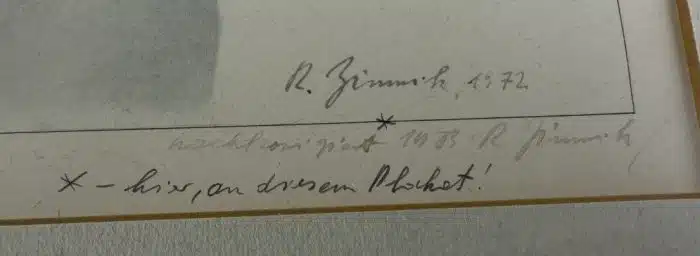 R. Zimnik, 1972
nachkoloriert 1983 R Zimnik,
* – hier, an diesem Plakat!